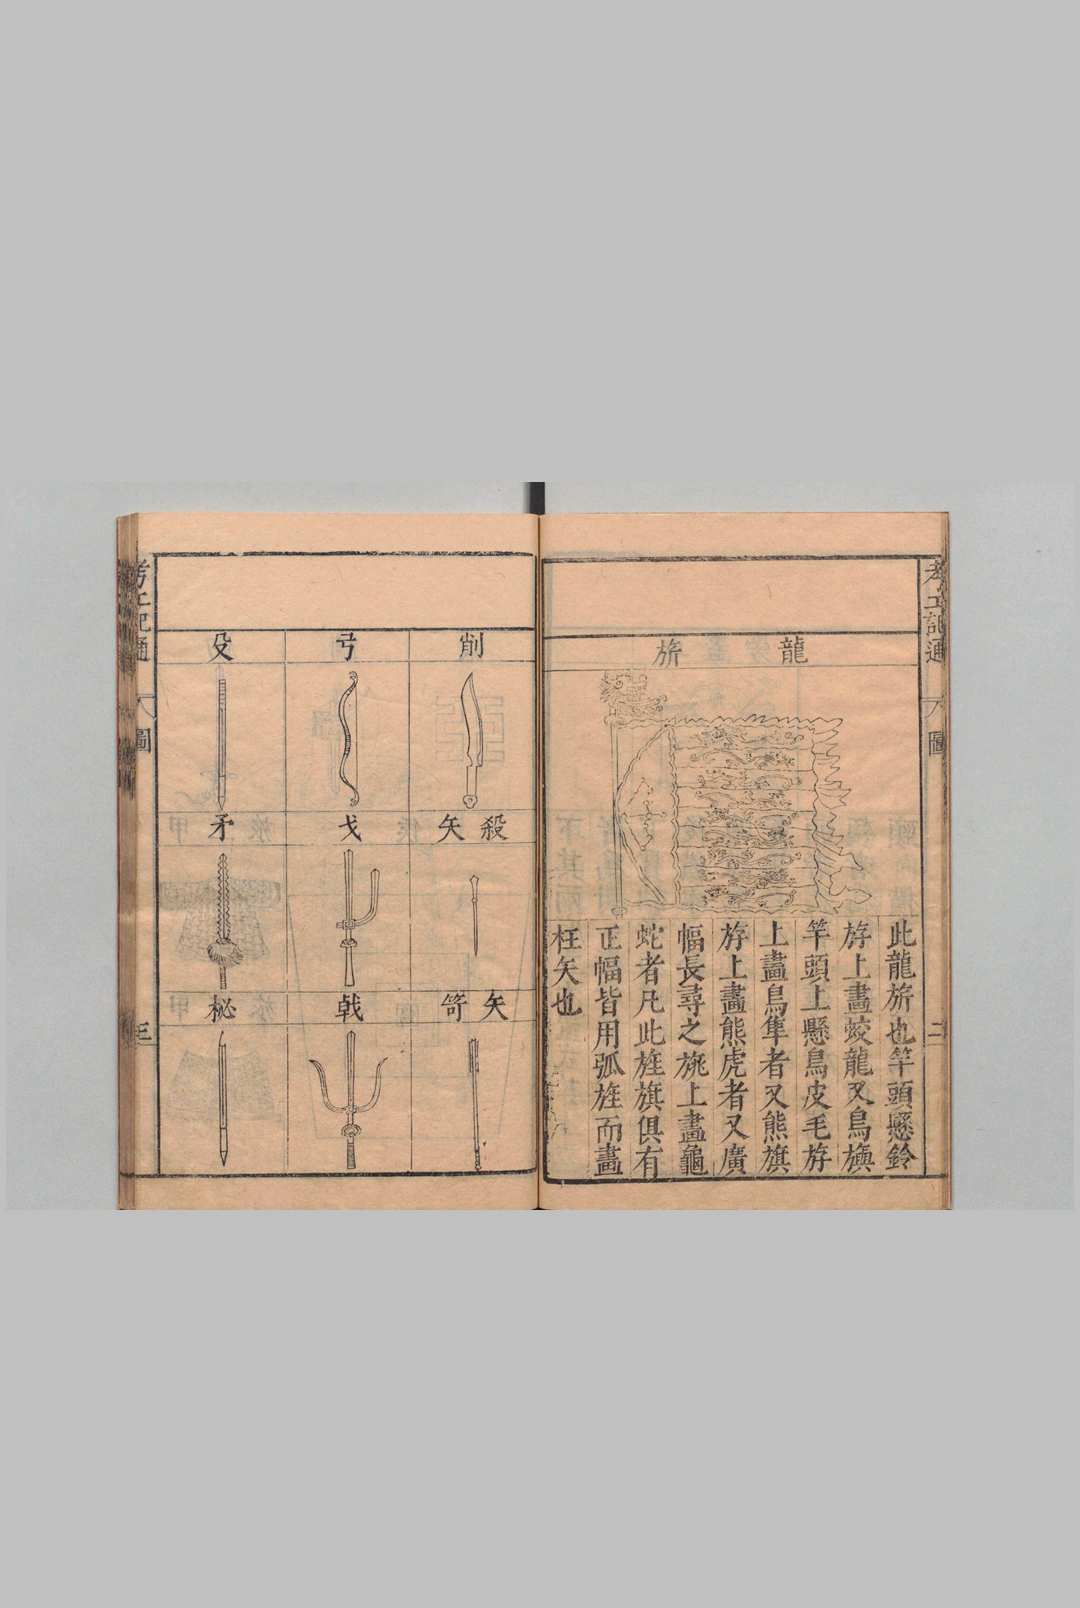 考工記通 圖 二
龍旂
此龍旂也竿頭懸鈴
斿上畫蛟龍又鳥旟
竿頭上懸鳥皮毛斿
上畫鳥隼者又熊旗
斿上畫熊虎者又廣
幅長尋之旐上畫龜
蛇者凡此旌旗俱有
正幅皆用弧旌而畫
枉矢也
削
弓
殳
殺矢
戈
矛
矢笴
戟
柲
考工記通 圖 三